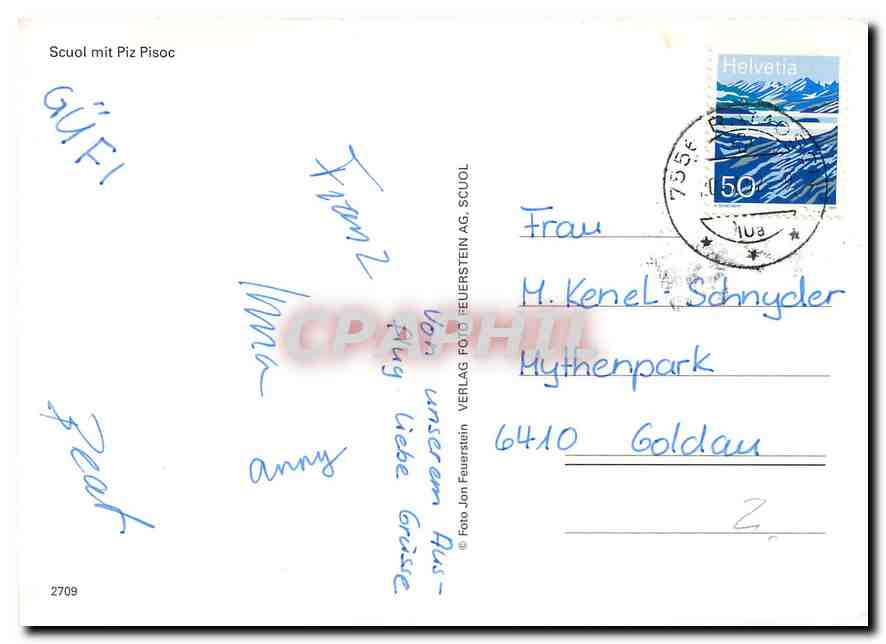 Scuol mit Piz Pisoc
GÜFI
Franz
Irma
anny
Beat
Von unserem Aus-
flug liebe Grüsse
© Foto Jon Feuerstein VERLAG FOTO FEUERSTEIN AG, SCUOL
Helvetia
50
7556
10a
Frau
M. Kenel-Schnyder
Mythenpark
6410 Goldau
2.
2709
CPAPHIL